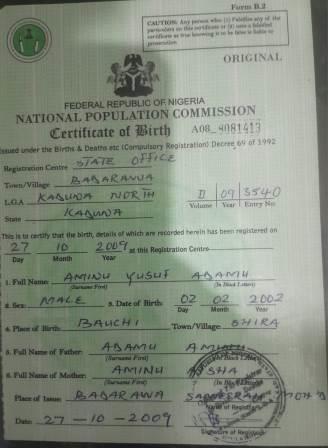 Form B.2
CAUTION: Any person who (1) Falsifies any of the
particulars on this certificate or (2) uses a falsified
certificate as true knowing it to be false is liable to
prosecution
ORIGINAL
FEDERAL REPUBLIC OF NIGERIA
NATIONAL POPULATION COMMISSION
Certificate of Birth A08_8081413
Issued under the Births & Deaths etc (Compulsory Registration) Decree 69 of 1992
Registration Centre STATE OFFICE
Town/Village BADARAWA
L.G.A KADUNA NORTH II 09 3540
Volume Year Entry No.
State KADUNA
This is to certify that the birth, details of which are recorded herein has been registered on
27 10 2009 at this Registration Centre
Day Month Year
1. Full Name: AMINU YUSUF ADAMU
(Surname First) (In Block Letters)
2. Sex: MALE 3. Date of Birth: 02 02 2002
Day Month Year
4. Place of Birth: BAUCHI Town/Village: SHIRA
5. Full Name of Father: ADAMU AMINU
(Surname First) (In Block Letters)
6. Full Name of Mother: AMINU
(Surname First) (In Block Letters)
Place of Issue: BADARAWA
Name of Registrar
Date: 27-10-2009
Signature of Registrar